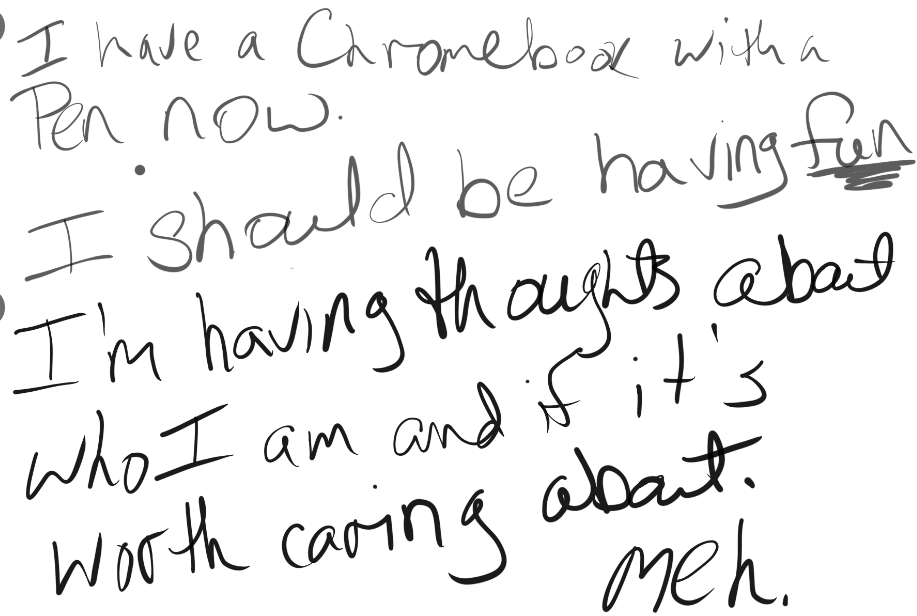 I have a Chromebook with a
Pen now.
I should be having fun
I'm having thoughts about
who I am and if it's
worth caring about.
Meh.